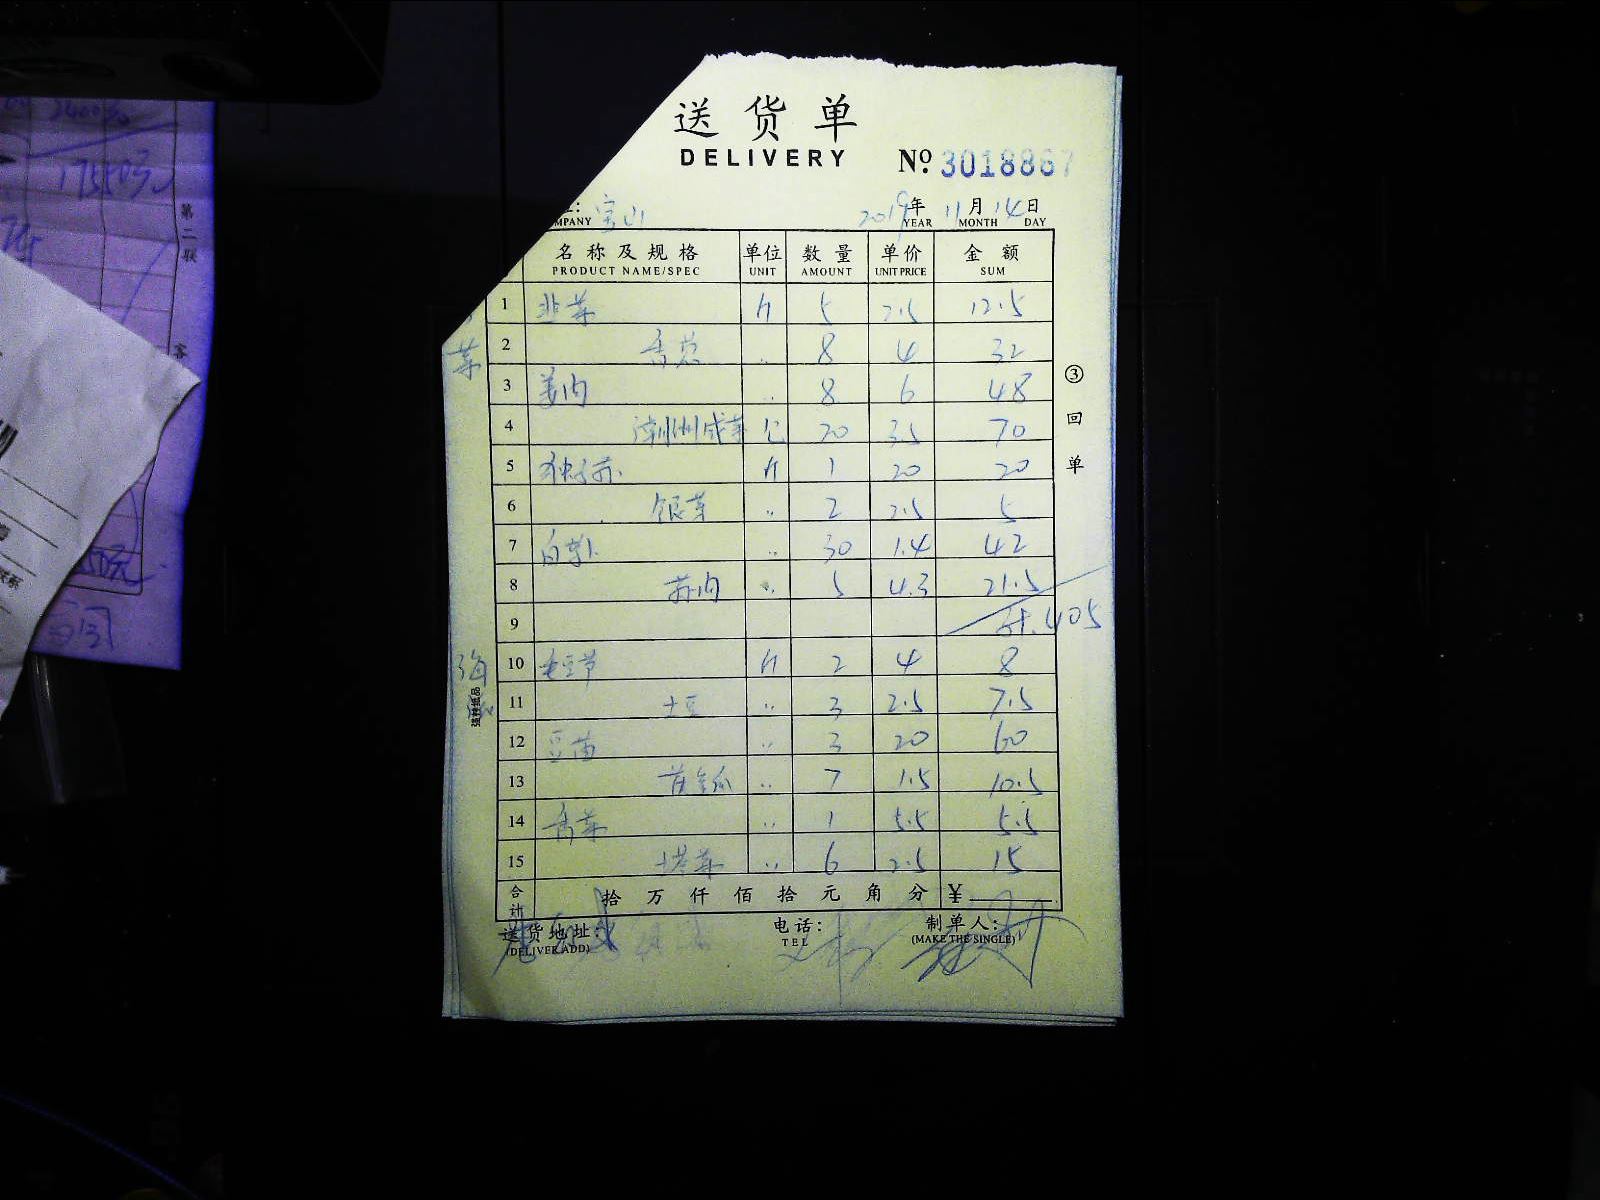 送货单
DELIVERY
№ 3018867
MPANY 宝山 2019年 11月 14日
YEAR MONTH DAY
名称及规格 单位 数量 单价 金额
PRODUCT NAME/SPEC UNIT AMOUNT UNIT PRICE SUM
1 韭菜 斤 5 2.5 12.5
2 香葱 〃 8 4 32
3 姜肉 〃 8 6 48
4 潮州咸菜 包 20 3.5 70
5 独子蒜 斤 1 20 20
6 银芽 〃 2 2.5 5
7 白萝卜 〃 30 1.4 42
8 蒜肉 〃 5 4.3 21.5
9 计.405
10 毛豆节 斤 2 4 8
11 土豆 〃 3 2.5 7.5
12 豆苗 〃 3 20 60
13 黄金瓜 〃 7 1.5 10.5
14 香菜 〃 1 5.5 5.5
15 塔菜 〃 6 2.5 15
合计 拾 万 仟 佰 拾 元 角 分 ¥
送货地址: 电话: 制单人:
(DELIVER ADD) TEL (MAKE THE SINGLE)
③回单
菜
海
强林纸品
第二联
17550元